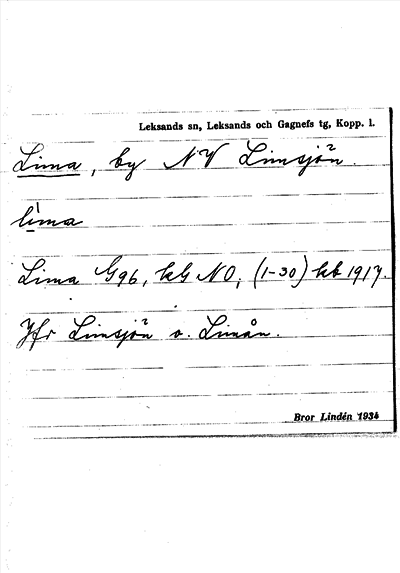 Leksands sn, Leksands och Gagnefs tg, Kopp. l.
Lima, by NV Limsjön.
lima
Lima G96, kG NO, (1-30) kb 1917.
Jfr Limsjön o. Limån.
Bror Lindén 1934